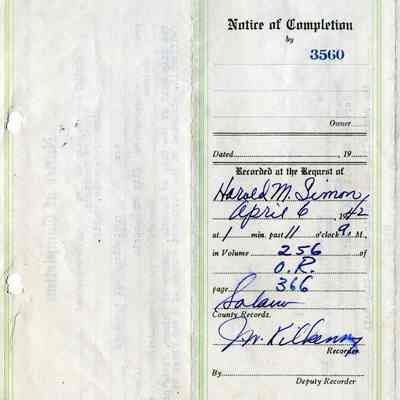 Notice of Completion
by
3560
Owner
Dated , 19
Recorded at the Request of
Harold M. Simon
April 6 , 1942
at 1 min. past 11 o'clock A. M.,
in Volume 256 of
O.R.
page 366
Solano
County Records.
J.W. Kilkenny
Recorder
By
Deputy Recorder